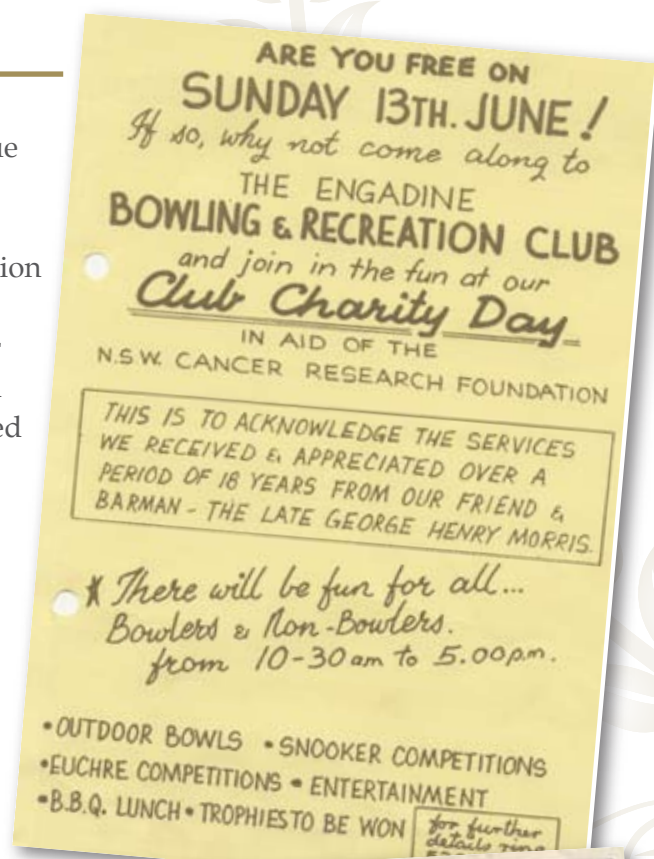 ue
ion
ed
ARE YOU FREE ON
SUNDAY 13TH. JUNE!
If so, why not come along to
THE ENGADINE
BOWLING & RECREATION CLUB
and join in the fun at our
Club Charity Day
IN AID OF THE
N.S.W. CANCER RESEARCH FOUNDATION
THIS IS TO ACKNOWLEDGE THE SERVICES
WE RECEIVED & APPRECIATED OVER A
PERIOD OF 18 YEARS FROM OUR FRIEND &
BARMAN - THE LATE GEORGE HENRY MORRIS.
* There will be fun for all...
Bowlers & Non-Bowlers.
from 10-30 am to 5.00p.m.
• OUTDOOR BOWLS • SNOOKER COMPETITIONS
• EUCHRE COMPETITIONS • ENTERTAINMENT
• B.B.Q. LUNCH • TROPHIES TO BE WON
for further
details ring